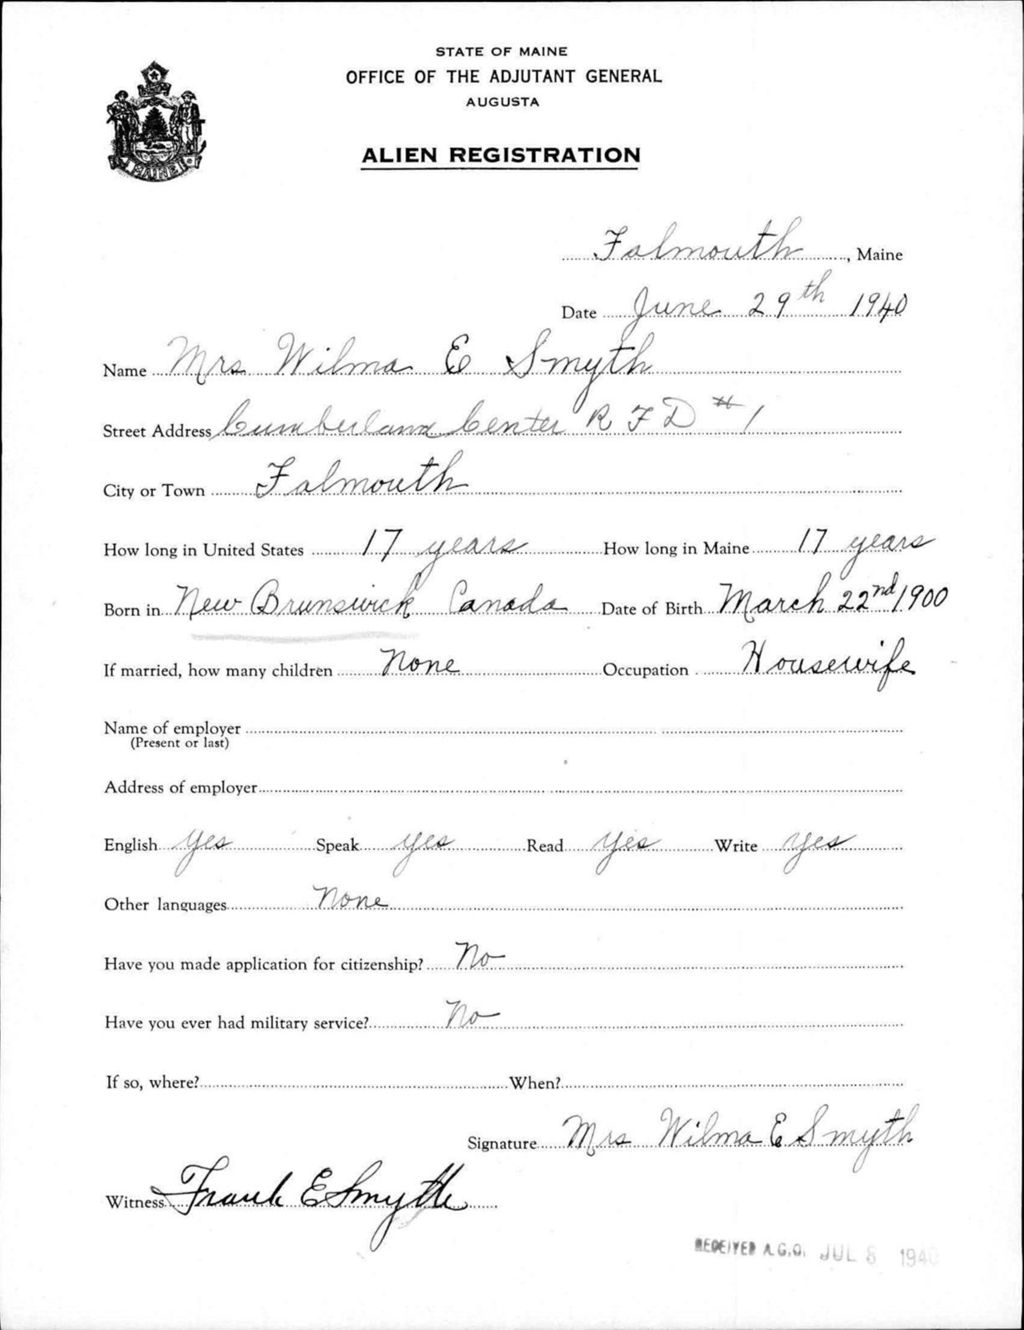 STATE OF MAINE
OFFICE OF THE ADJUTANT GENERAL
AUGUSTA
ALIEN REGISTRATION
MAINE
Falmouth, Maine
Date June 29th 1940
Name Mrs Wilma E Smyth
Street Address Cumberland Center R F D #1
City or Town Falmouth
How long in United States 17 years How long in Maine 17 years
Born in New Brunswick Canada Date of Birth March 22nd 1900
If married, how many children None Occupation Housewife
Name of employer
(Present or last)
Address of employer
English yes Speak yes Read yes Write yes
Other languages None
Have you made application for citizenship? No
Have you ever had military service? No
If so, where? When?
Signature Mrs Wilma E Smyth
Witness Frank E Smyth
RECEIVED A.G.O. JUL 8 1940